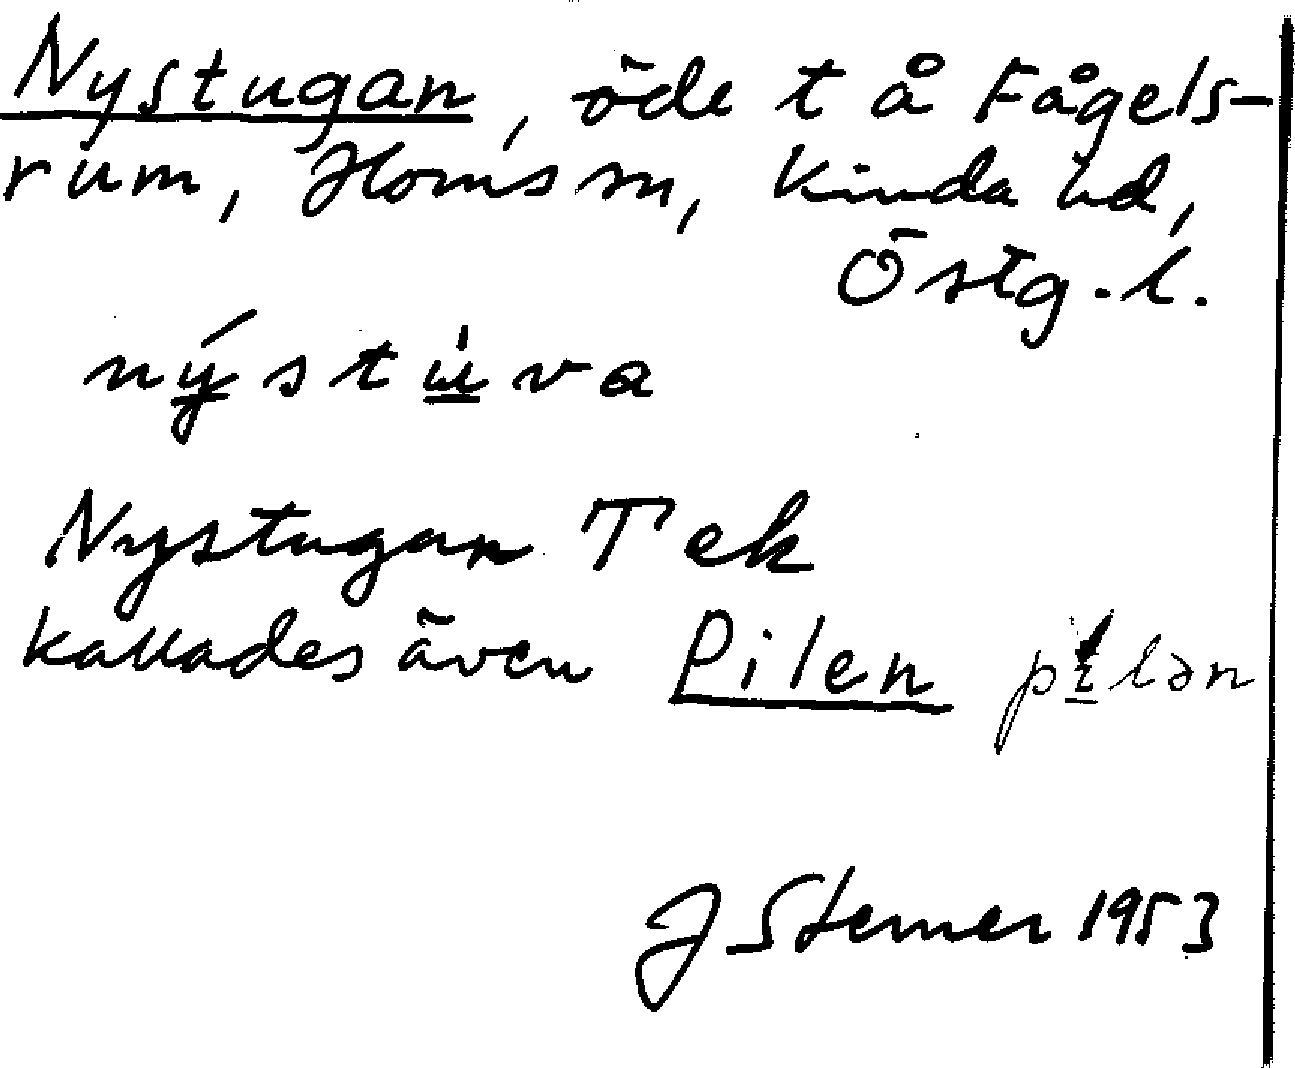 Nystugan, öde t å Fågels-
rum, Horns sn, Kinda hd,
Östg. l.
nýstu̇va
Nystugan T ek
kallades även Pilen pílən
J Sterner 1953